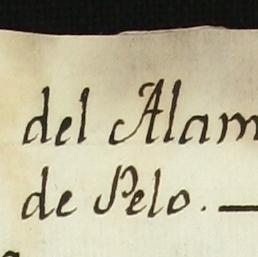 del Alam
de Pelo.—